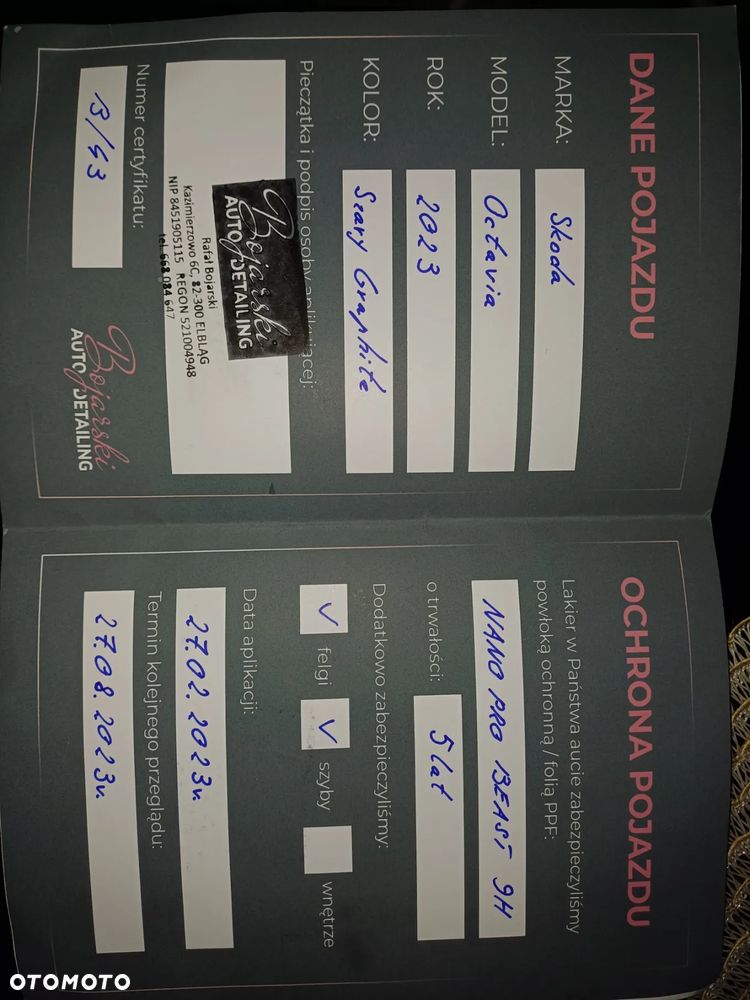 DANE POJAZDU
MARKA: Skoda
MODEL: Octavia
ROK: 2023
KOLOR: Szary Graphite
Pieczątka i podpis osoby aplikującej:
Bojarski
AUTO DETAILING
Rafał Bojarski
Kazimierzowo 6C, 82-300 ELBLĄG
NIP 8451905115 REGON 521004948
tel. 668 084 647
Numer certyfikatu:
13/43
Bojarski
AUTO DETAILING
OCHRONA POJAZDU
Lakier w Państwa aucie zabezpieczyliśmy
powłoką ochronną / folią PPF:
NANO PRO BEAST 9H
o trwałości: 5 lat
Dodatkowo zabezpieczyliśmy:
felgi szyby wnętrze
Data aplikacji:
27.02.2023r.
Termin kolejnego przeglądu:
27.08.2023r.
OTOMOTO